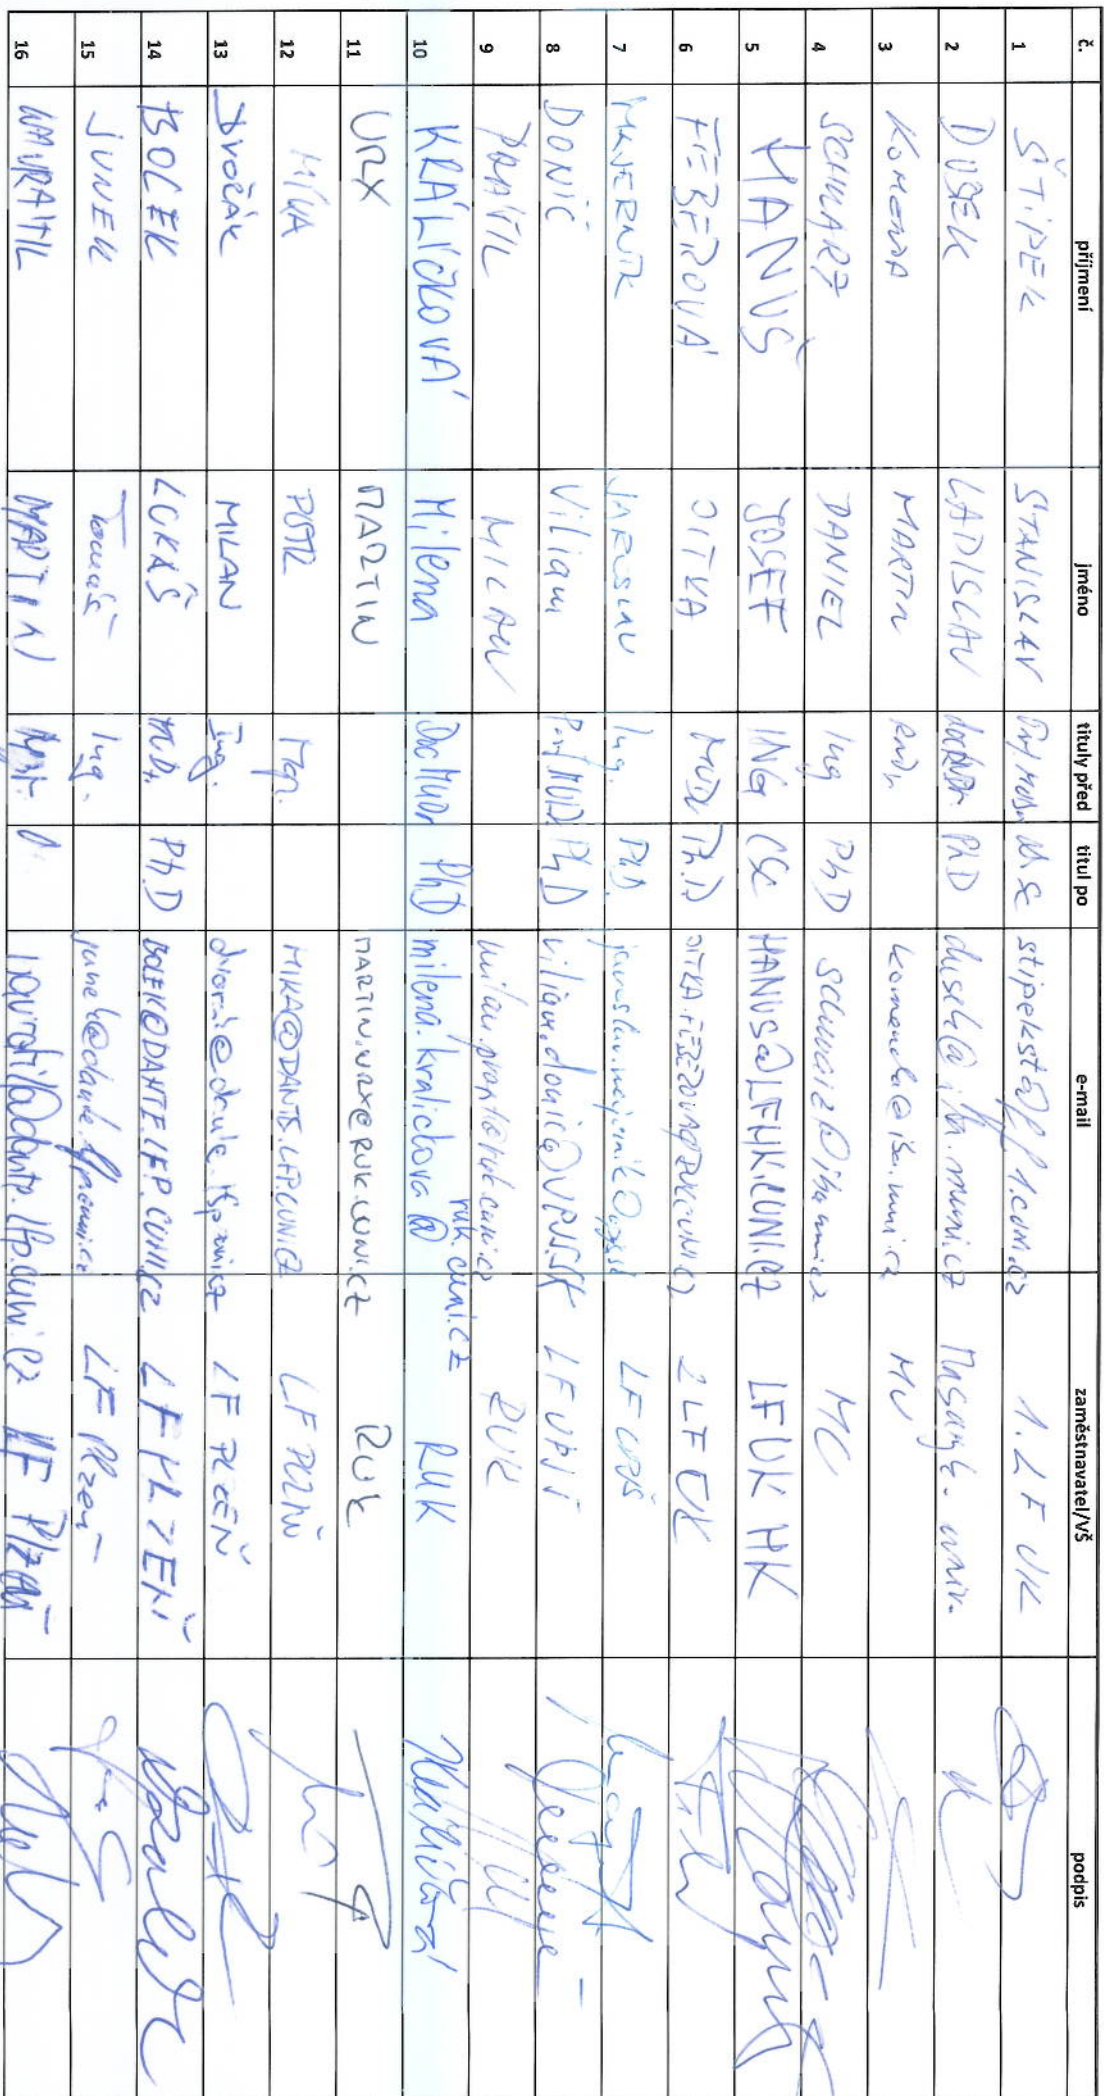 č. příjmení jméno tituly před titul po e-mail zaměstnavatel/VŠ podpis
1 ŠTÍPEK STANISLAV stipekst@lf1.cuni.cz 1. LF UK
2 DUŠEK LADISLAV PhD dusek@iba.muni.cz Masaryk. univ.
3 KOMENDA MARTIN RNDr. komenda@iba.muni.cz MU
4 SCHWARZ DANIEL Ing PhD schwarz@iba.muni.cz MU
5 HANUŠ JOSEF ING CSC HANUS@LFHK.CUNI.CZ LF UK HK
6 FEBEROVÁ JITKA MUDr Ph.D 2 LF UK
7 MAJERNÍK JAROSLAV Ing. PhD. LF UPJŠ
8 DONIČ Viliam Prof MUDr PhD viliam.donic@UPJS.SK LF UPJŠ
9 MILAN RUK
10 KRÁLÍČKOVÁ Milena Doc MUDr PhD milena.kralickova@ruk.cuni.cz RUK
11 URX MARTIN MARTIN.URX@RUK.CUNI.CZ RUK
12 MÍKA PETR Mgr. MIKA@DANTE.LFP.CUNI.CZ LF PLZEŇ
13 DVOŘÁK MILAN Ing. LF PLZEŇ
14 BOLEK LUKÁŠ Ph.D BOLEK@DANTE.LFP.CUNI.CZ LF PLZEŇ
15 JUNEK Tomáš Ing. LF Plzeň
16 NAVRÁTIL MARTIN navratil@dante.lfp.cuni.cz LF Plzeň